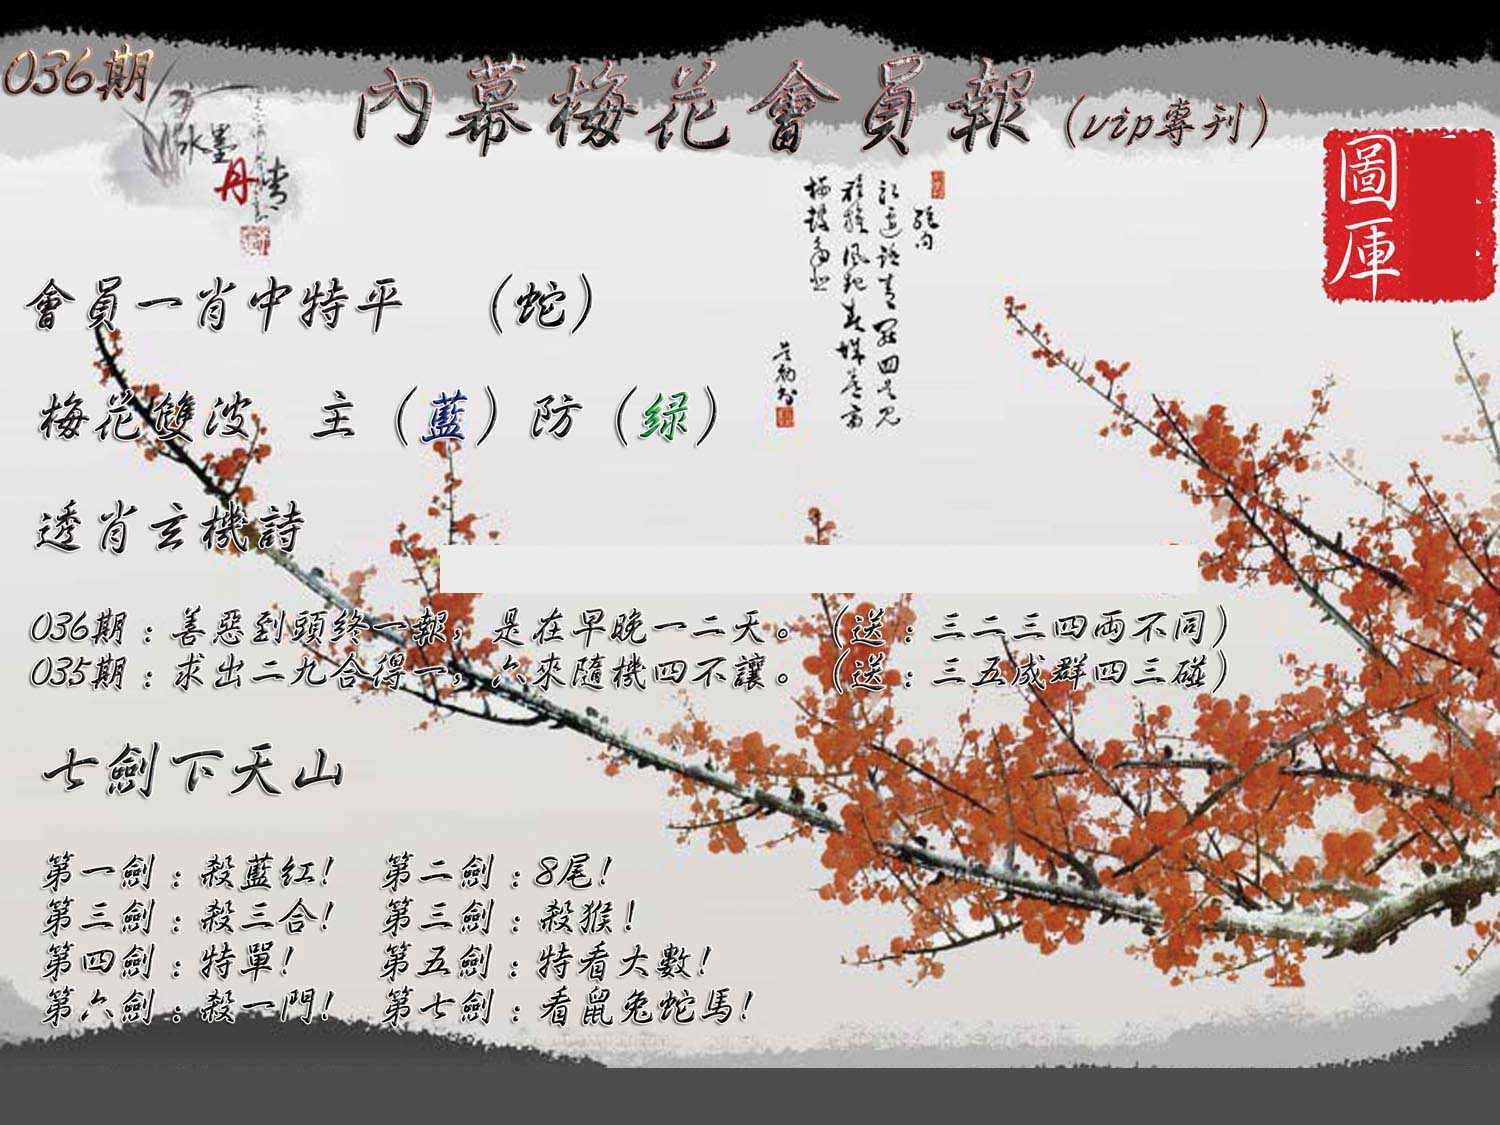 036期
內幕梅花會員報(vip專刊)
水墨
丹情
圖庫
會員一肖中特平 (蛇)
梅花雙波 主(藍)防(绿)
透肖玄機詩
036期：善惡到頭終一報，是在早晚一二天。(送：三二三四兩不同)
035期：求出二九合得一，六來隨機四不讓。(送：三五成群四三碰)
七劍下天山
第一劍：殺藍紅! 第二劍：8尾!
第三劍：殺三合! 第三劍：殺猴!
第四劍：特單! 第五劍：特看大數!
第六劍：殺一門! 第七劍：看鼠兔蛇馬!